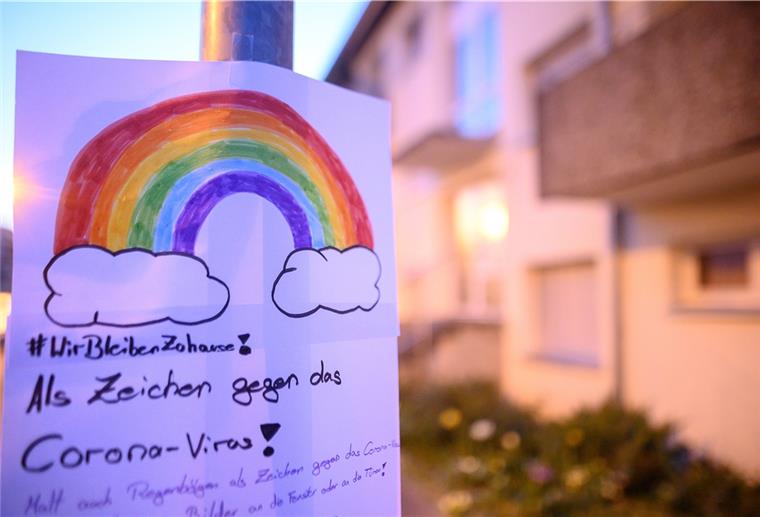 #WirBleibenZuhause!
Als Zeichen gegen das
Corona-Virus!
Malt auch Regenbögen als Zeichen gegen das Corona-
Bilder an die Fenster oder an die Türen!